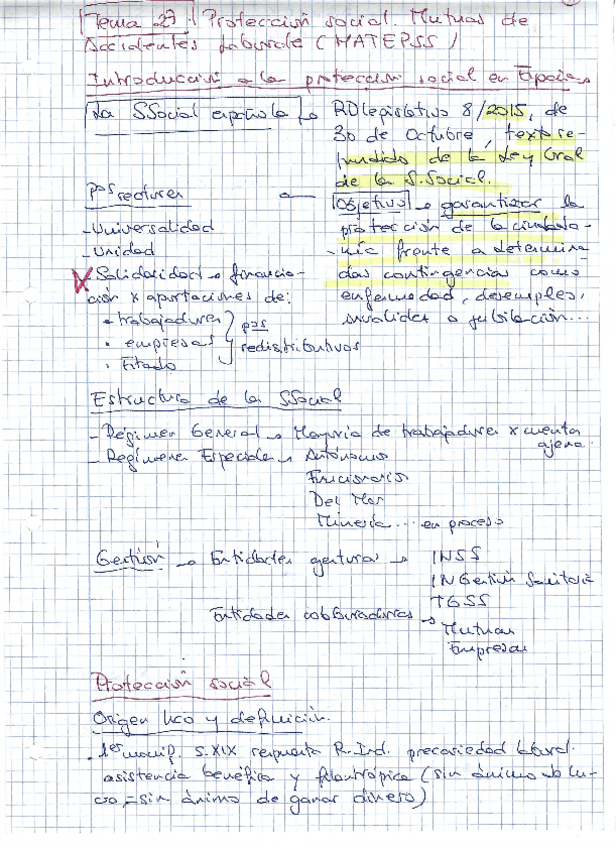 Tema 27: Protección social. Mutuas de
Accidentes Laborale (MATEPSS)
Introducción a la protección social en España
La SSocial española → RDlegislativo 8/2015, de
30 de Octubre, texto re-
fundido de la Ley Gral
de la S.Social.
pos rectores
Objetivo → garantizar la
protección de la ciudada-
nía frente a determina
das contingencias como
enfermedad, desempleo,
invalidez o jubilación...
- Universalidad
- Unidad
- Solidaridad → financia-
ción x aportaciones de:
• trabajadores
• empresas
• Estado
pos
redistributivos
Estructura de la SSocial
- Régimen General → Mayoría de trabajadores x cuenta
ajena.
- Régimen Especiale → Autónomos
Funcionarios
Del Mar
Minería... en proceso
Gestión → Entidades gestoras → INSS
INGestión Sanitaria
TGSS
Entidades colaboradoras →
Mutuas
Empresas
Protección social
Origen hco y definición.
. 1as manif. S. XIX respuesta R. Ind. precariedad laboral.
asistencia benéfica y filantrópica (sin ánimo de lu-
cro = sin ánimo de ganar dinero)